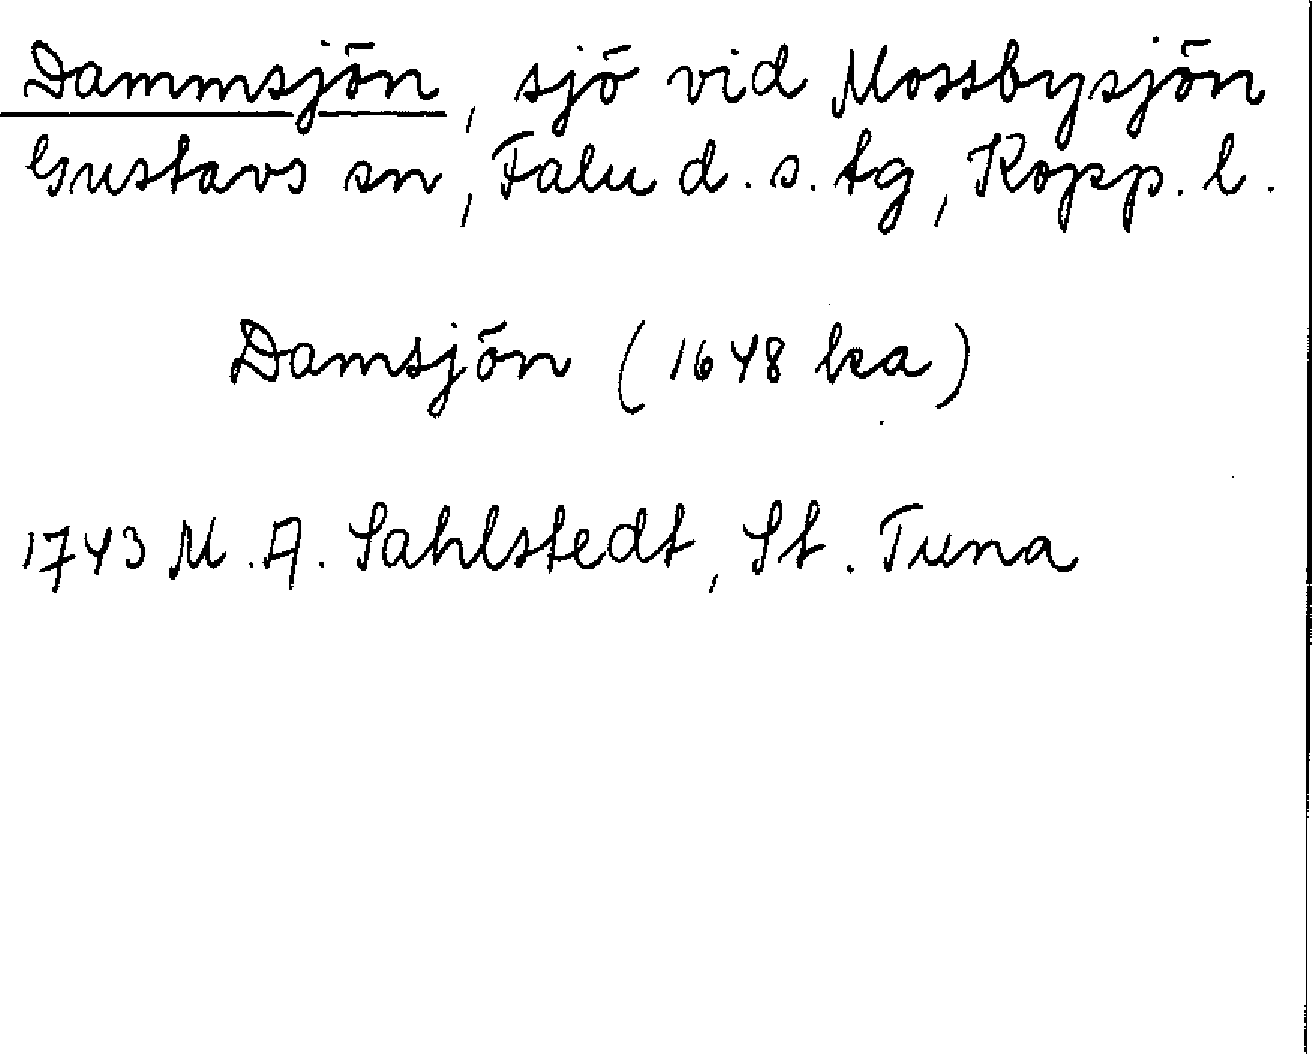 Dammsjön, sjö vid Mossbysjön
Gustavs sn, Falu d. s. tg, Kopp. l.
Damsjön (1648 ka)
1743 M. A. Sahlstedt, St. Tuna